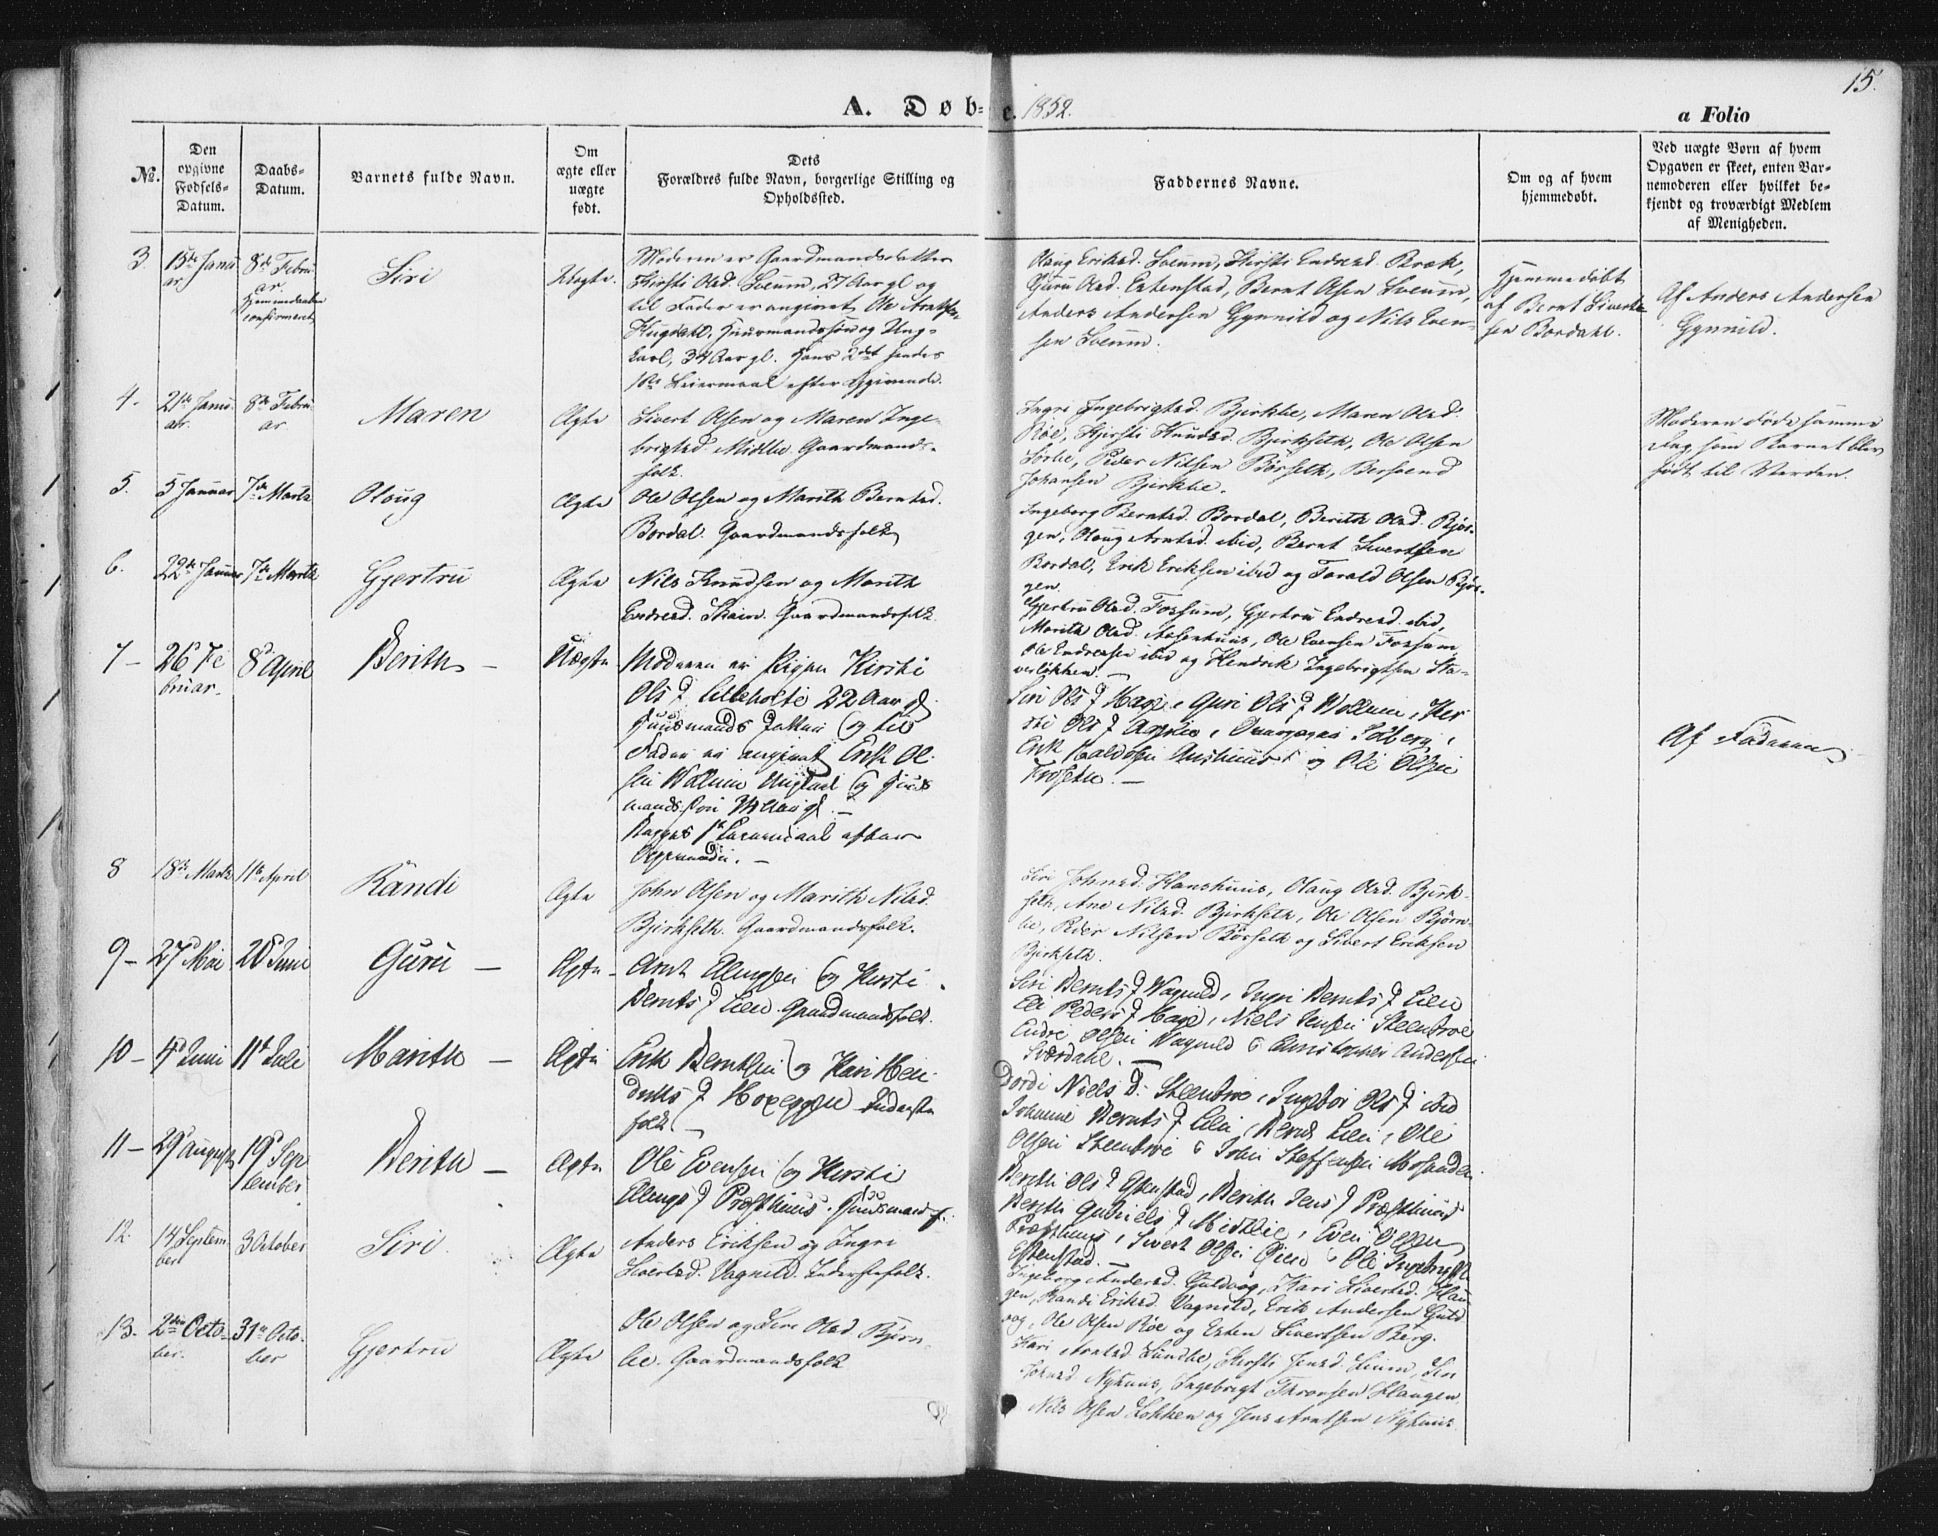 15.
A. Døb-e. 1852.
a Folio
No.
Den opgivne Fødsels-Datum.
Daabs-Datum.
Barnets fulde Navn.
Om ægte eller uægte født.
Dets Forældres fulde Navn, borgerlige Stilling og Opholdssted.
Faddernes Navne.
Om og af hvem hjemmedøbt.
Ved uægte Børn af hvem Opgaven er skeet, enten Barnemoderen eller hvilket bekjendt og troværdigt Medlem af Menigheden.
3.
15de Janu
ar.
8de Febru
ar.
Hjemmedaaben
confirmeret
Siri
Uægte.
Moderen er Gaardmandsdatter
Kirsti Olsd. Soeum, 27 Aar gl og
til Fader er angivet Ole Arntsen
Hugdahl, Huusmandssøn og Ung-
karl, 34 Aar gl. Hans 2det hendes
1ste Leiermaal efter Opgivende.
Olaug Eriksd. Soeum, Kirsti Endresd. Bræk,
Guru Olsd. Estenstad, Bernt Olsen Soeum,
Anders Andersen Gynnild og Nils Even-
sen Soeum.
Hjemmedøbt
af Bernt Sivert-
sen Bordahl.
Af Anders Andersen
Gynnild.
4.
21de Janu-
ar.
8de Febru-
ar
Maren
Ægte
Sivert Olsen og Maren Inge-
brigtsd. Midtlie Gaardmands-
folk.
Ingri Ingebrigtsd. Bjerklie, Maren Olsd.
Røe, Kjersti Knudsd. Bjerkseth, Ole Olsen
Sørlie, Peder Nilsen Børseth, Bersvend
Johansen Bjerklie.
Moderen døde samme
Dag som Barnet blev
født til Verden.
5.
5 Januar
7de Marts
Olaug
Ægte
Ole Olsen og Marith Berntsd.
Bordal. Gaardmandsfolk
Ingeborg Berntsd. Bordal, Berith Olsd. Bjør-
gen, Olaug Arntsd. ibid, Bernt Sivertsen
Bordal, Erik Eriksen ibid og Tarald Olsen Bjør-
gen.
6.
22de Januar
7de Marts
Gjertru
Ægte
Nils Knudsen og Marith
Endresd. Skain. Gaardmandsfolk
Gjertru Olsd. Forsum, Gjertru Endresd. ibid,
Marith Olsd. Aasenhuus, Ole Evensen Forsum,
Ole Endresen ibid og Hendrik Ingebrigtsen Sta-
verløkken.
7 -
26d Fe
bruar.
8d April
Berith -
Uægte
Moderen er Pigen Kirsti
Ols D. Lilleholte 22 Aar gl
Huusmands Datter og til
Fader er angivet Erik Ol-
sen Wollum Ungkarl og Huus
mandssøn
Begges 1ste Leiermaal efter
Opgivende. -
Siri Ols D Hage, Guri Ols D Wollum, Kir
sti Ols D
Erik Haldosen og Ole Olsen
Af Faderen
8
18de Marts
11te April
Randi
Ægte
John Olsen og Marith Nilsd.
Bjerkseth. Gaardmandsfolk.
Siri Johnsd. Hanshuus, Olaug Olsd. Bjerk-
seth, Ane Nilsd. Bjerkseth, Ole Olsen Bjørn-
lie, Peder Nilsen Børseth og Sivert Eriksen
Bjerkseth.
9 -
27d Mai
20d Juni
Guru -
Ægte -
Arnt Ellingsen og Kirsti
Bernts D Lien. Gaardmandsfolk.
Siri Bernts D Vagnild, Ingri Bernts D Lien
Eli Peders D Hage, Niels Jensen Steenbroe
Endre Olsen Vagnild & Christopher Andersen
Sverdahl. -
10 -
4d Juni
11te Juli
Marith -
Ægte
Erik Berntsen og Kari Hen
driks D Hoxeggen Inderste
folk -
Dordi Niels D. Steenbroe, Ingebor Ols D ibid
Johanne Bernts D Lien, Bernt Lien, Ole
Olsen Steenbroe & John Steffensen Mosanden
11 -
29d August
19d Sep
tember
Berith -
Ægte
Ole Evensen og Kirsti
Ellings D Præsthuus. Huusmandsf.
Berith Ols D Estenstad, Berith Jens D Præsthuus
Berith Gabriels D Midtlie, Even
Præsthuus, Sivert Olsen Øien & Ole Ingebrigtsen
Estenstad. -
12.
14 Septem-
ber
3 October
Siri
Ægte
Anders Eriksen og Ingri
Sivertsd. Vagnild. Inderstefolk.
Ingeborg Andersd. Guldvog, Kari Sivertsd. Hau-
gen, Randi Eriksd. Vagnild, Erik Andersen Guld
vog, Ole Olsen Røe og Esten Sivertsen Berg.
13.
2den Octo-
ber.
31te Octo-
ber
Gjertru
Ægte
Ole Olsen og Siri Olsd Bjørn-
lie. Gaardmandsfolk
Kari Arntsd. Lundlie, Kirsti Jensd. Lium, Siri
Johnsd Nyhuus, Ingebrigt Thoresen Haugen,
Nils Olsen Løkken og Jens Arntsen Nyhuus.